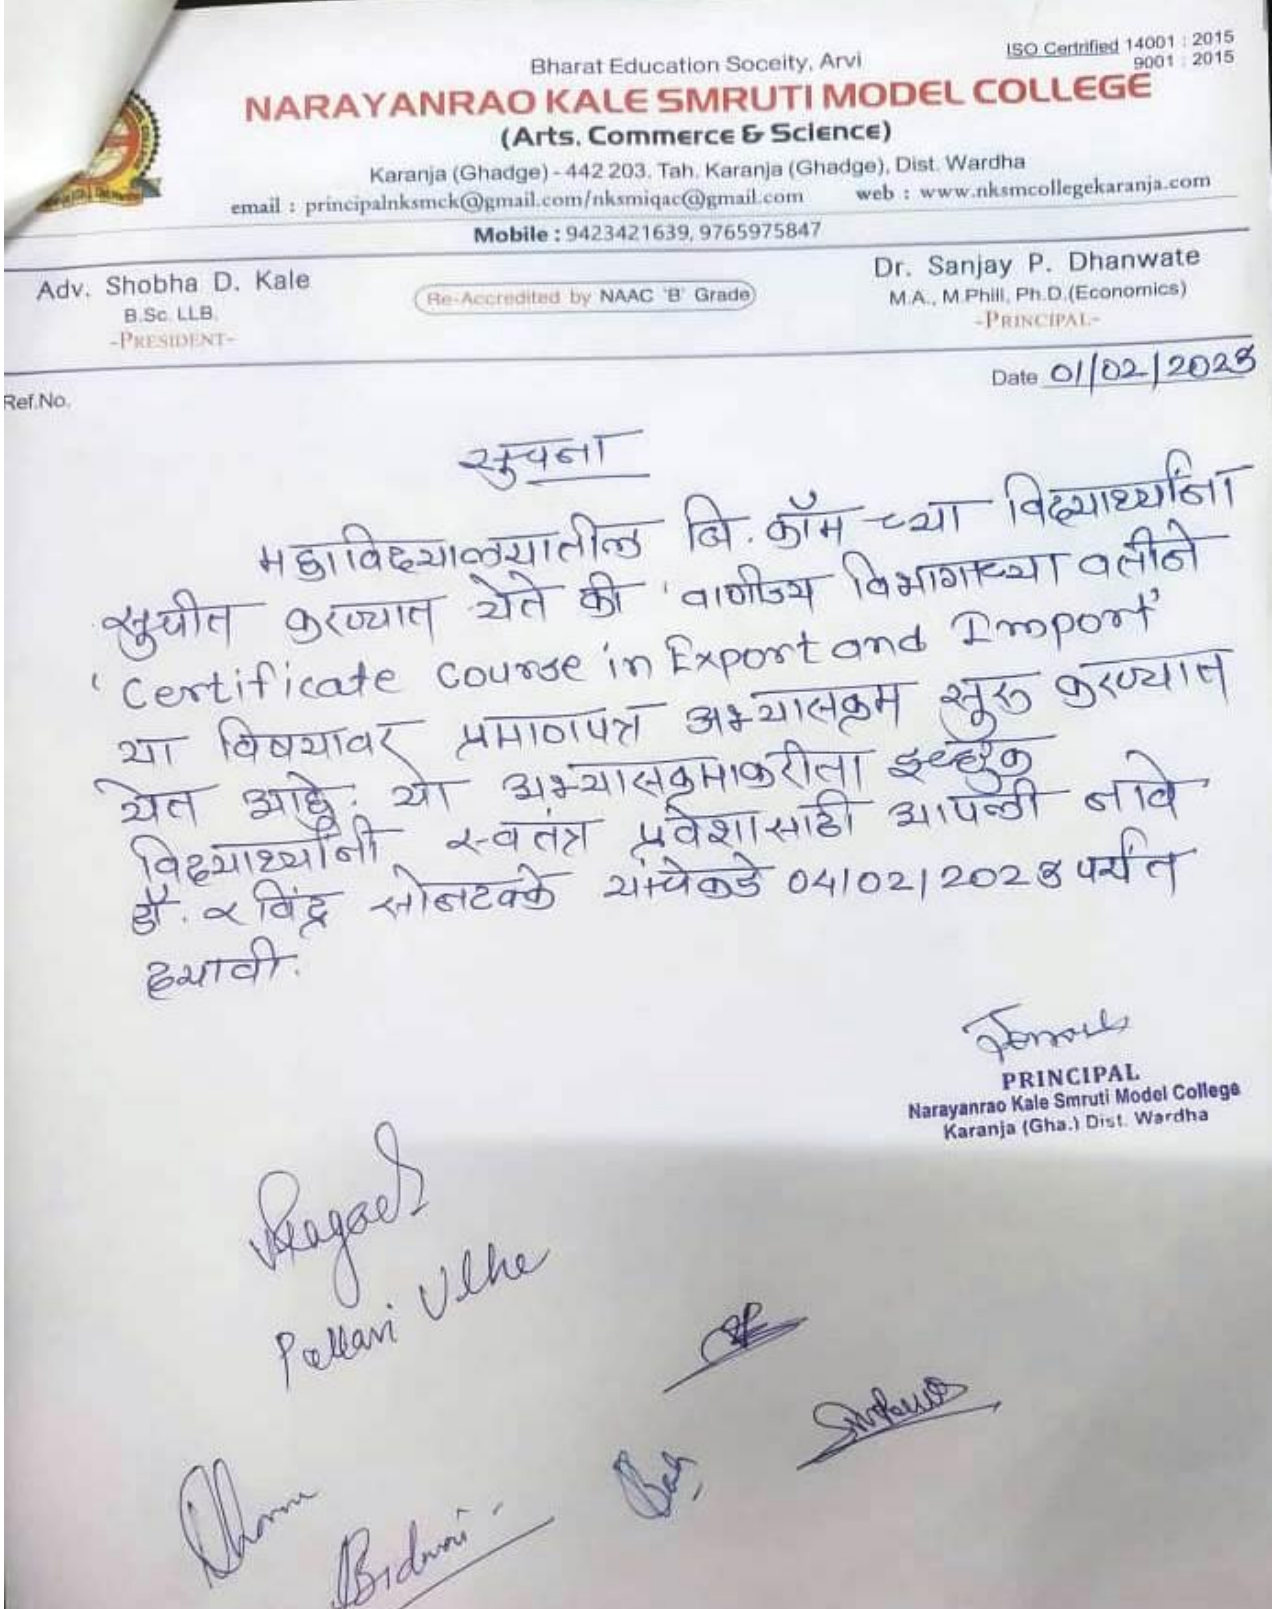 ISO Certrified 14001 : 2015
9001 : 2015
Bharat Education Soceity, Arvi
NARAYANRAO KALE SMRUTI MODEL COLLEGE
(Arts, Commerce & Science)
Karanja (Ghadge) - 442 203, Tah. Karanja (Ghadge), Dist. Wardha
email : principalnksmck@gmail.com/nksmiqac@gmail.com web : www.nksmcollegekaranja.com
Mobile : 9423421639, 9765975847
Adv. Shobha D. Kale
B.Sc. LLB.
-PRESIDENT-
Re-Accredited by NAAC 'B' Grade
Dr. Sanjay P. Dhanwate
M.A., M.Phill, Ph.D.(Economics)
-PRINCIPAL-
Ref.No.
Date 01/02/2023
सुचना
महाविद्यालयातील बि. कॉम च्या विद्यार्थ्यांना
सुचीत करण्यात येते की 'वाणीज्य विभागाच्या वतीने
'Certificate course in Export and Import'
या विषयावर प्रमाणपत्र अभ्यासक्रम सुरु करण्यात
येत आहे. या अभ्यासक्रमाकरीता इच्छुक
विद्यार्थ्यांनी स्वतंत्र प्रवेशासाठी आपली नावे
डॉ. रविंद्र सोनटक्के यांचेकडे 04/02/2023 पर्यंत
द्यावी.
PRINCIPAL
Narayanrao Kale Smruti Model College
Karanja (Gha.) Dist. Wardha
Pallavi Ulhe
Bidwai